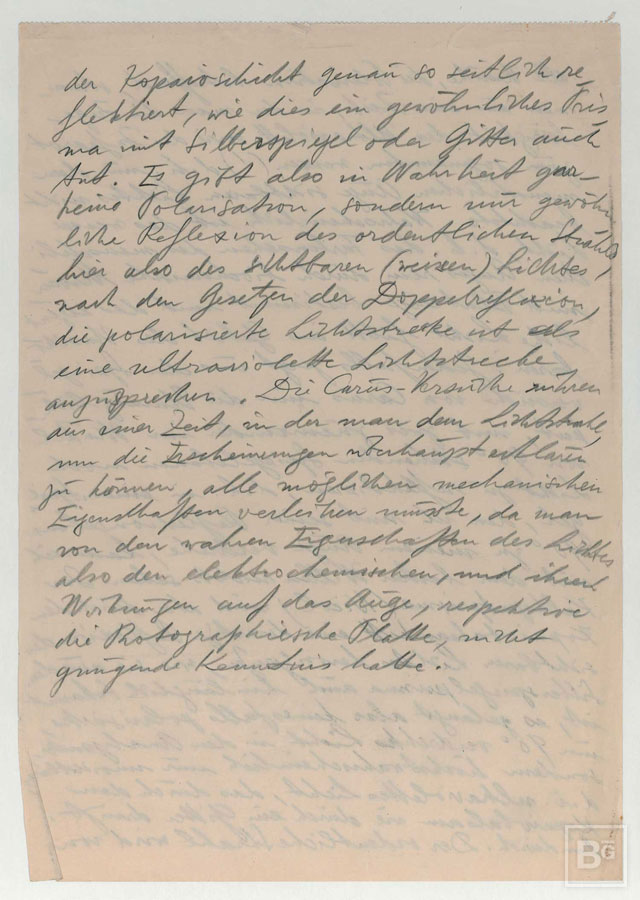 der Kopaioschicht genau so seitlich re-
flektiert, wie dies ein gewöhnliches Pris
ma mit Silberspiegel oder Gitter auch
tut. Es gibt also in Wahrheit gar-
keine Polarisation, sondern nur gewöhn
liche Reflexion des ordentlichen Strahls,
hier also des sichtbaren (weissen) Lichtes,
nach den Gesetzen der Doppelreflexion,
die polarisierte Lichtstrecke ist als
eine ultraviolette Lichtstrecke
anzusprechen. Die Versuche rühren
aus einer Zeit, in der man dem Lichtstrahl,
um die Erscheinungen überhaupt erklären
zu können, alle möglichen mechanischen
Eigenschaften verleihen musste, da man
von den wahren Eigenschaften des Lichtes
also den elektrochemischen, und ihren
Wirkungen auf das Auge, respektive
die Platte, nicht
genügende Kenntnis hatte.
BG